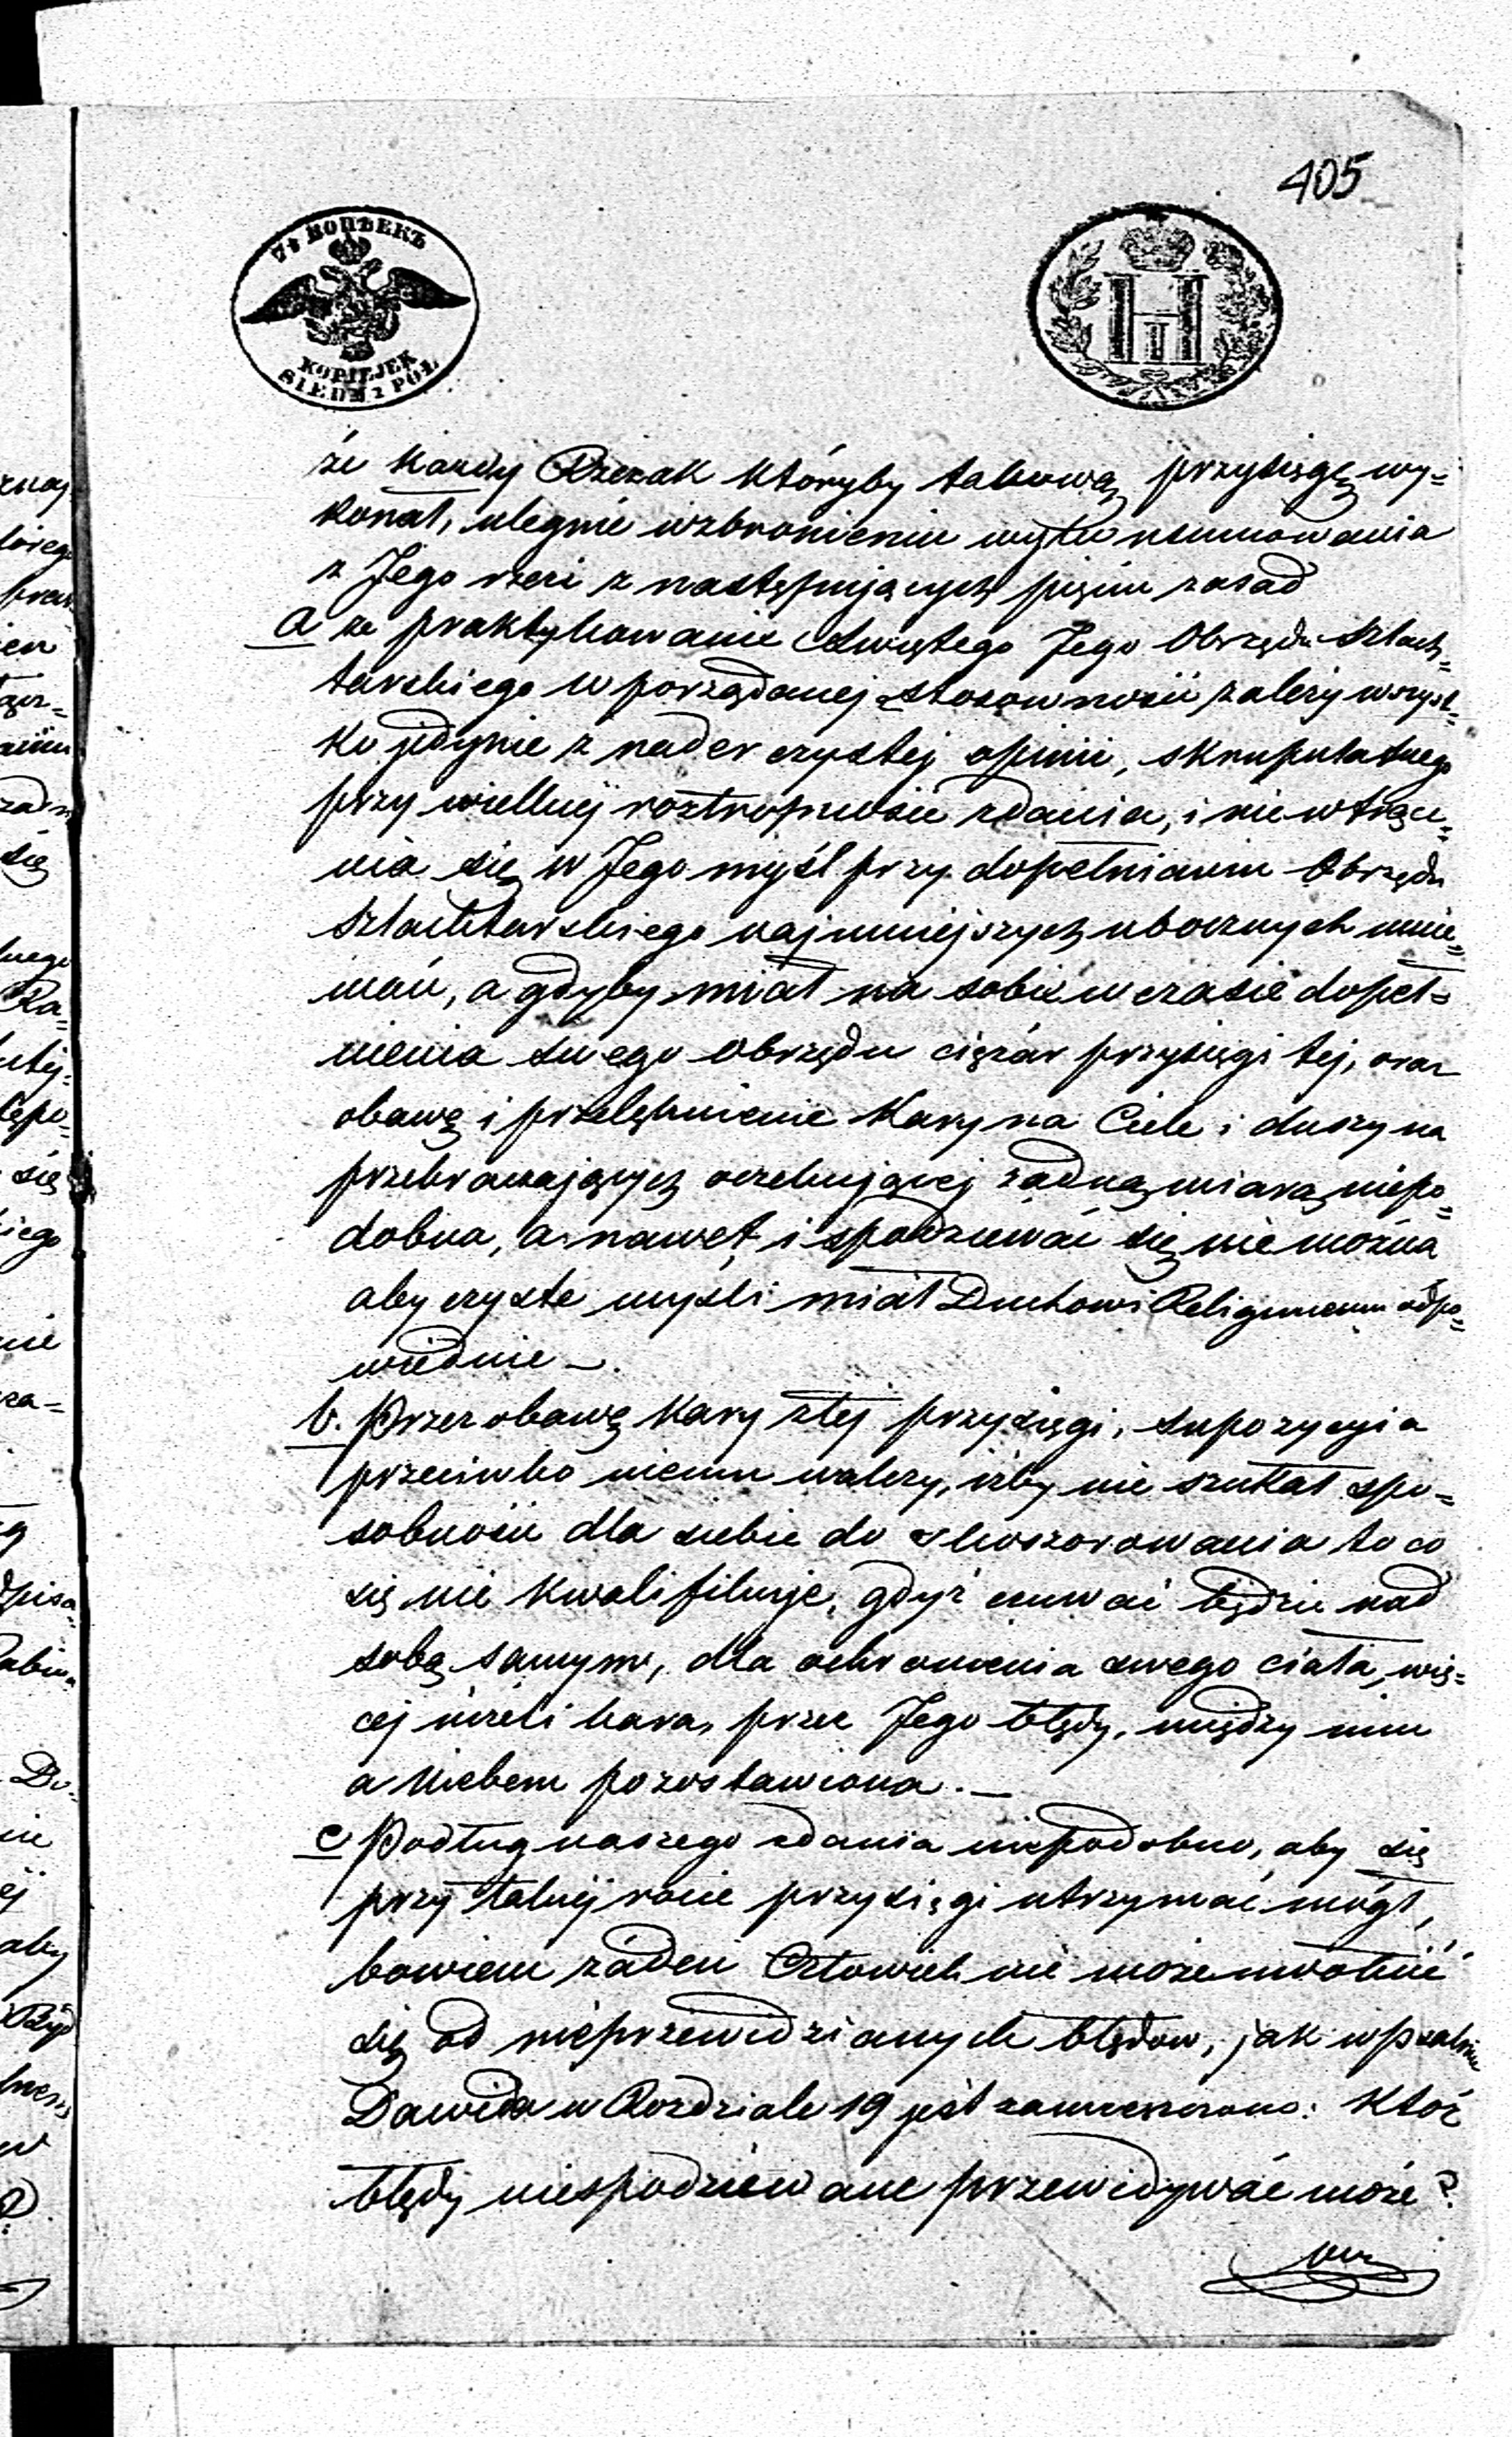 405
7½ КОПѢЕКЪ
KOPIEJEK
SIEDM i PÓŁ
H
I
że każdy Rzezak któryby takową przysięgę wy=
konał, ulegnie wzbronieniu wyku
z Jego rzezi z następujących pięciu zasad
a że praktykowanie Świętego Jego Obrzędu Szlach=
tarskiego w porządanej stosowności zależy wszyst=
ko jedynie z nader czystej opinii, skrupulatnego
przy wielkiéj roztropności zdania, i nie wtrące=
nia się w Jego myśl przy dopełnianiu Obrzędu
Szlachtarskiego najmniejszych ubocznych mnie=
mań, a gdyby miał na sobie w czasie dopeł=
nienia swego Obrzędu ciężar przysięgi tej, oraz
obawę i przelęknienie Kary na Ciele i duszy na
przekraczających oczekującej żadną miarą niepo=
dobna, a nawet i spodziewać się nie można
aby czyste myśli miał Duchowi Religijnemu odpo=
wiednie —.
b. Przez obawę Kary z tej przysięgi, supozycyia
przeciwko niemu walczy, iżby nie szukał spo=
sobności dla siebie do skoszerowania to co
się nie kwalifikuje, gdyż czuwać będzie nad
sobą samym, dla ochronienia swego ciała, wię=
cej niżeli kara, przez Jego błędy, między nim
a Niebem pozostawiona. —
c Podług naszego zdania niepodobno, aby się
przy takiéj rocie przysięgi utrzymać mógł,
bowiem żáden Człowiek nie może uwolnić
się od nieprzewidzianych błędów, jak w psalmie
Dawida w Rozdziale 19 jest zamieszczono: Któż
błędy niespodziéwane przewidywáć może?